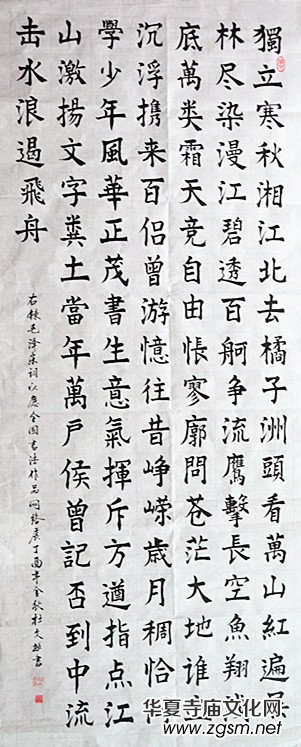 獨立寒秋湘江北去橘子洲頭看萬山紅遍层
林尽染漫江碧透百舸争流鷹擊長空魚翔浅
底萬类霜天竞自由悵寥廓問苍茫大地誰主
沉浮携来百侣曾游憶往昔峥嵘歲月稠恰同
學少年風華正茂書生意氣揮斥方遒指点江
山激揚文字糞土當年萬戶侯曾記否到中流
击水浪遏飛舟
右錄毛泽东词以應全国书法作品网络展丁酉年金秋杜文書
华夏寺庙文化网
www.zgsm.net